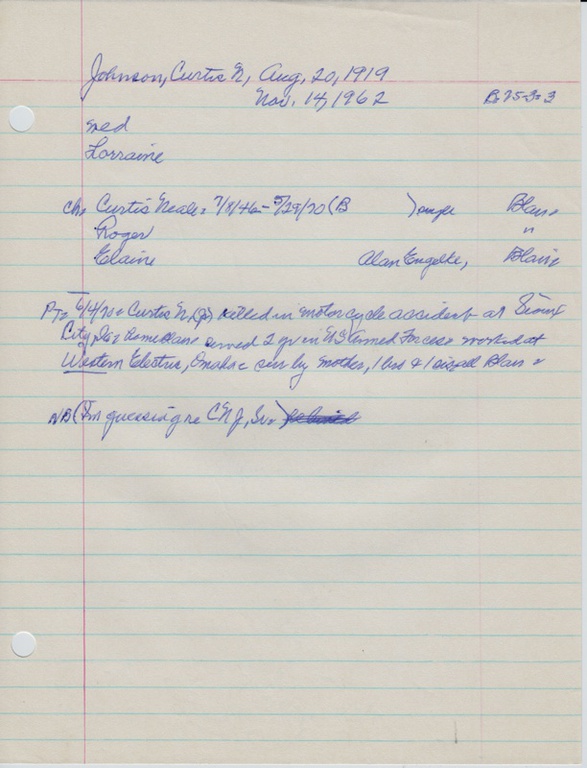 Johnson, Curtis N, Aug, 20, 1919
Nov. 14, 1962 B-75-3-3
med
Lorraine
ch, Curtis Neale: 7/8/46- 5/29/70 (B ) single Blair
Roger "
Elaine Alan Engelke, Blair
PT: 6/4/70: Curtis N, (Jr) killed in motorcycle accident at Sioux
City, Ia: home Blair served 2 yr in US Armed Forces: worked at
Western Electric, Omaha: surv by mother, 1 bro & 1 sis, all Blair
NB (I'm guessing re C N J, Sr.)